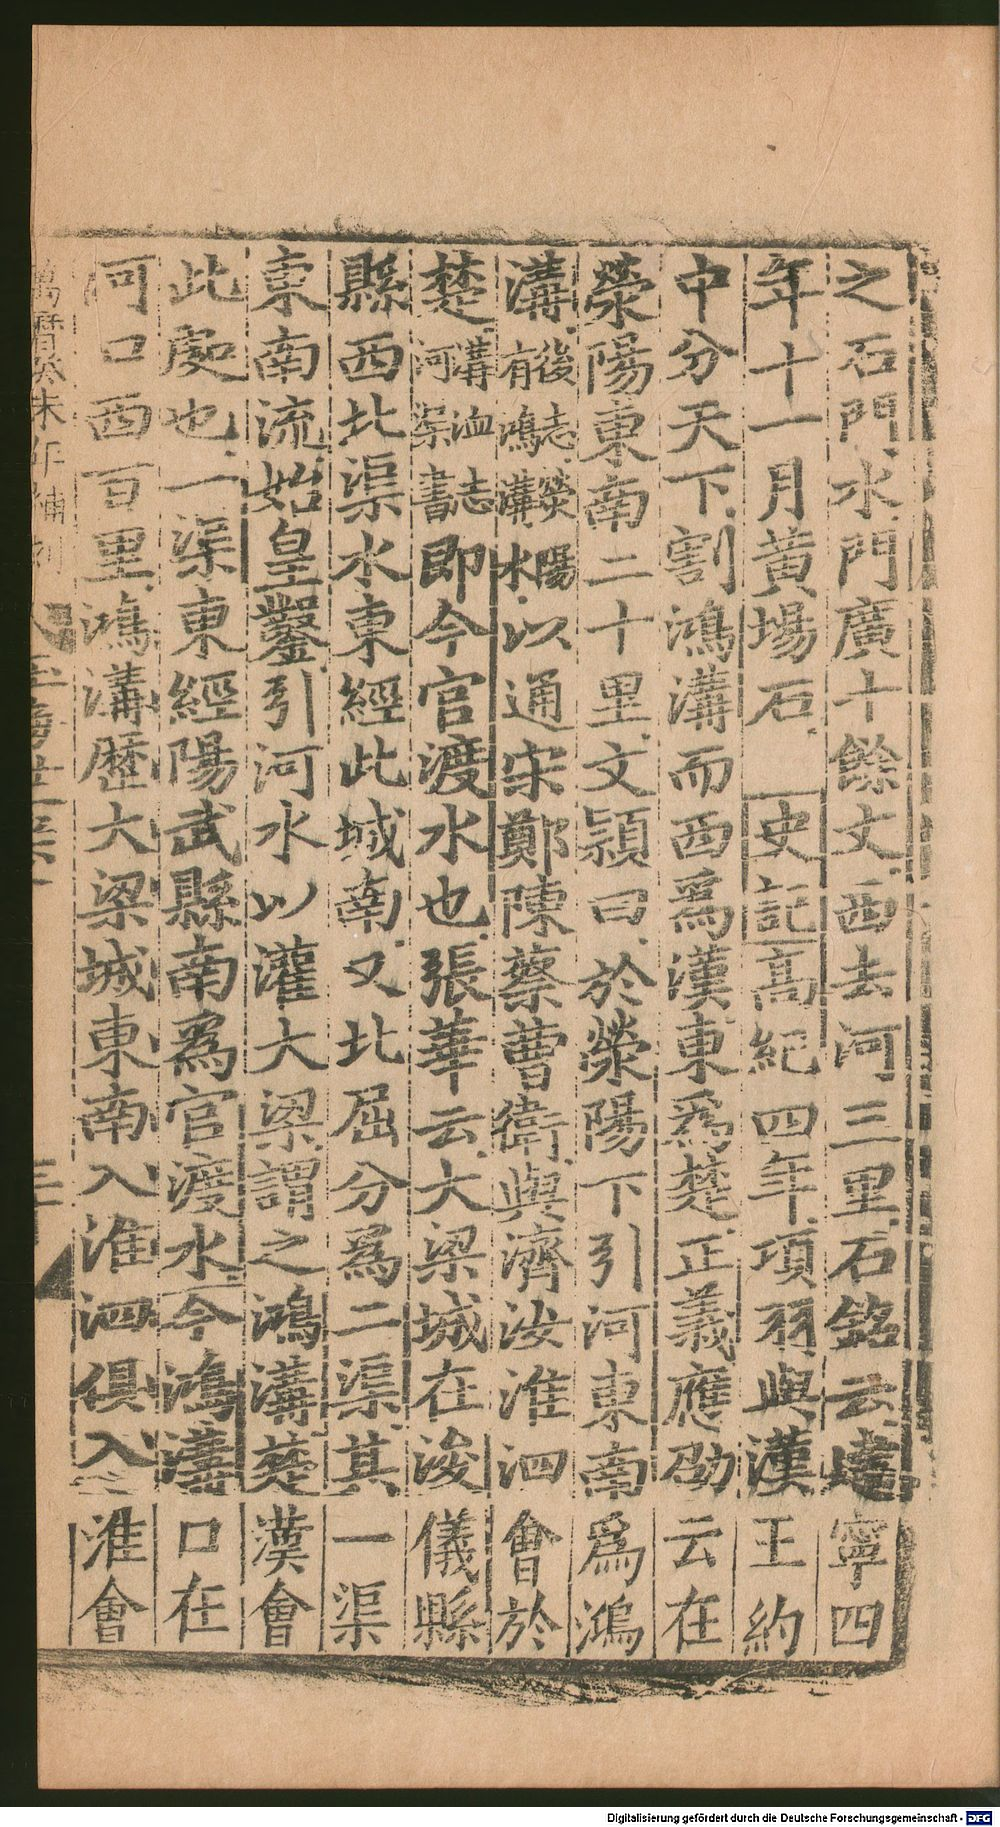 之石門水門廣十餘丈西去河三里石銘云建寧四
年十一月黃場石 史記高紀四年項羽與漢王約
中分天下割鴻溝而西爲漢東爲楚正義應劭云在
滎陽東南二十里文穎曰於滎陽下引河東南爲鴻
溝後志滎陽有鴻溝水以通宋鄭陳蔡曹衛與濟汝淮泗會於
楚溝洫志河渠書即今官渡水也張華云大梁城在浚儀縣
縣西北渠水東經此城南又北屈分爲二渠其一渠
東南流始皇鑿引河水以灌大梁謂之鴻溝楚漢會
此處也一渠東經陽武縣南爲官渡水今鴻溝口在
河口西百里鴻溝歷大梁城東南入淮泗俱入淮會
萬曆癸未年補刊
Digitalisierung gefördert durch die Deutsche Forschungsgemeinschaft - DFG